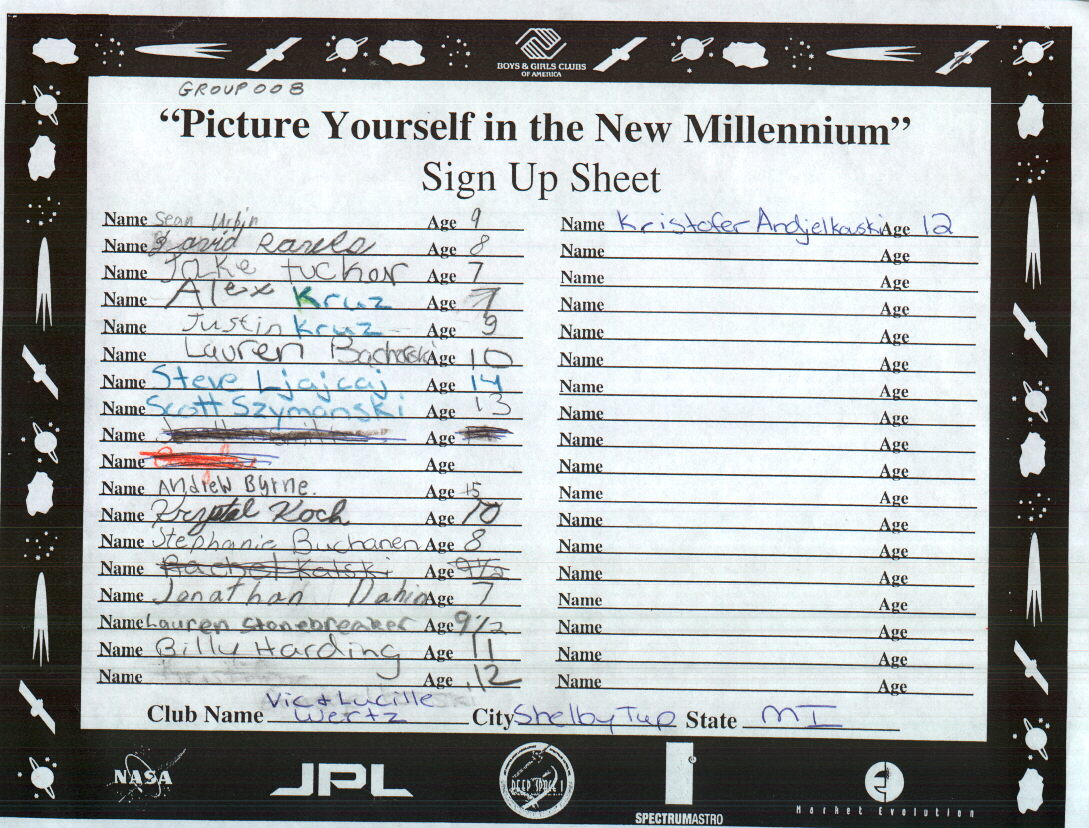 BOYS & GIRLS CLUBS
OF AMERICA
GROUP 008
“Picture Yourself in the New Millennium”
Sign Up Sheet
Name Sean Urbin Age 9
Name David Age 8
Name Jake tucher Age 7
Name Alex Kruz Age 7
Name Justin Kruz Age 9
Name Lauren Age 10
Name Steve Ljajcaj Age 14
Name Scott Szymanski Age 13
Name Age
Name Age
Name Andrew Byrne. Age 15
Name Krystal Koch Age 10
Name Stephanie Buchanen Age 8
Name Rachel Kalski Age 9 1/2
Name Jonathan Dahin Age 7
Name Lauren Stonebreaker Age 9 1/2
Name Billy Harding Age 11
Name Age 12
Name Kristofer Andjelkovski Age 12
Name Age
Name Age
Name Age
Name Age
Name Age
Name Age
Name Age
Name Age
Name Age
Name Age
Name Age
Name Age
Name Age
Name Age
Name Age
Name Age
Name Age
Club Name Vic & Lucille Wertz City Shelby Twp State MI
NASA
JPL
DEEP SPACE 1
SPECTRUMASTRO
Market Evolution